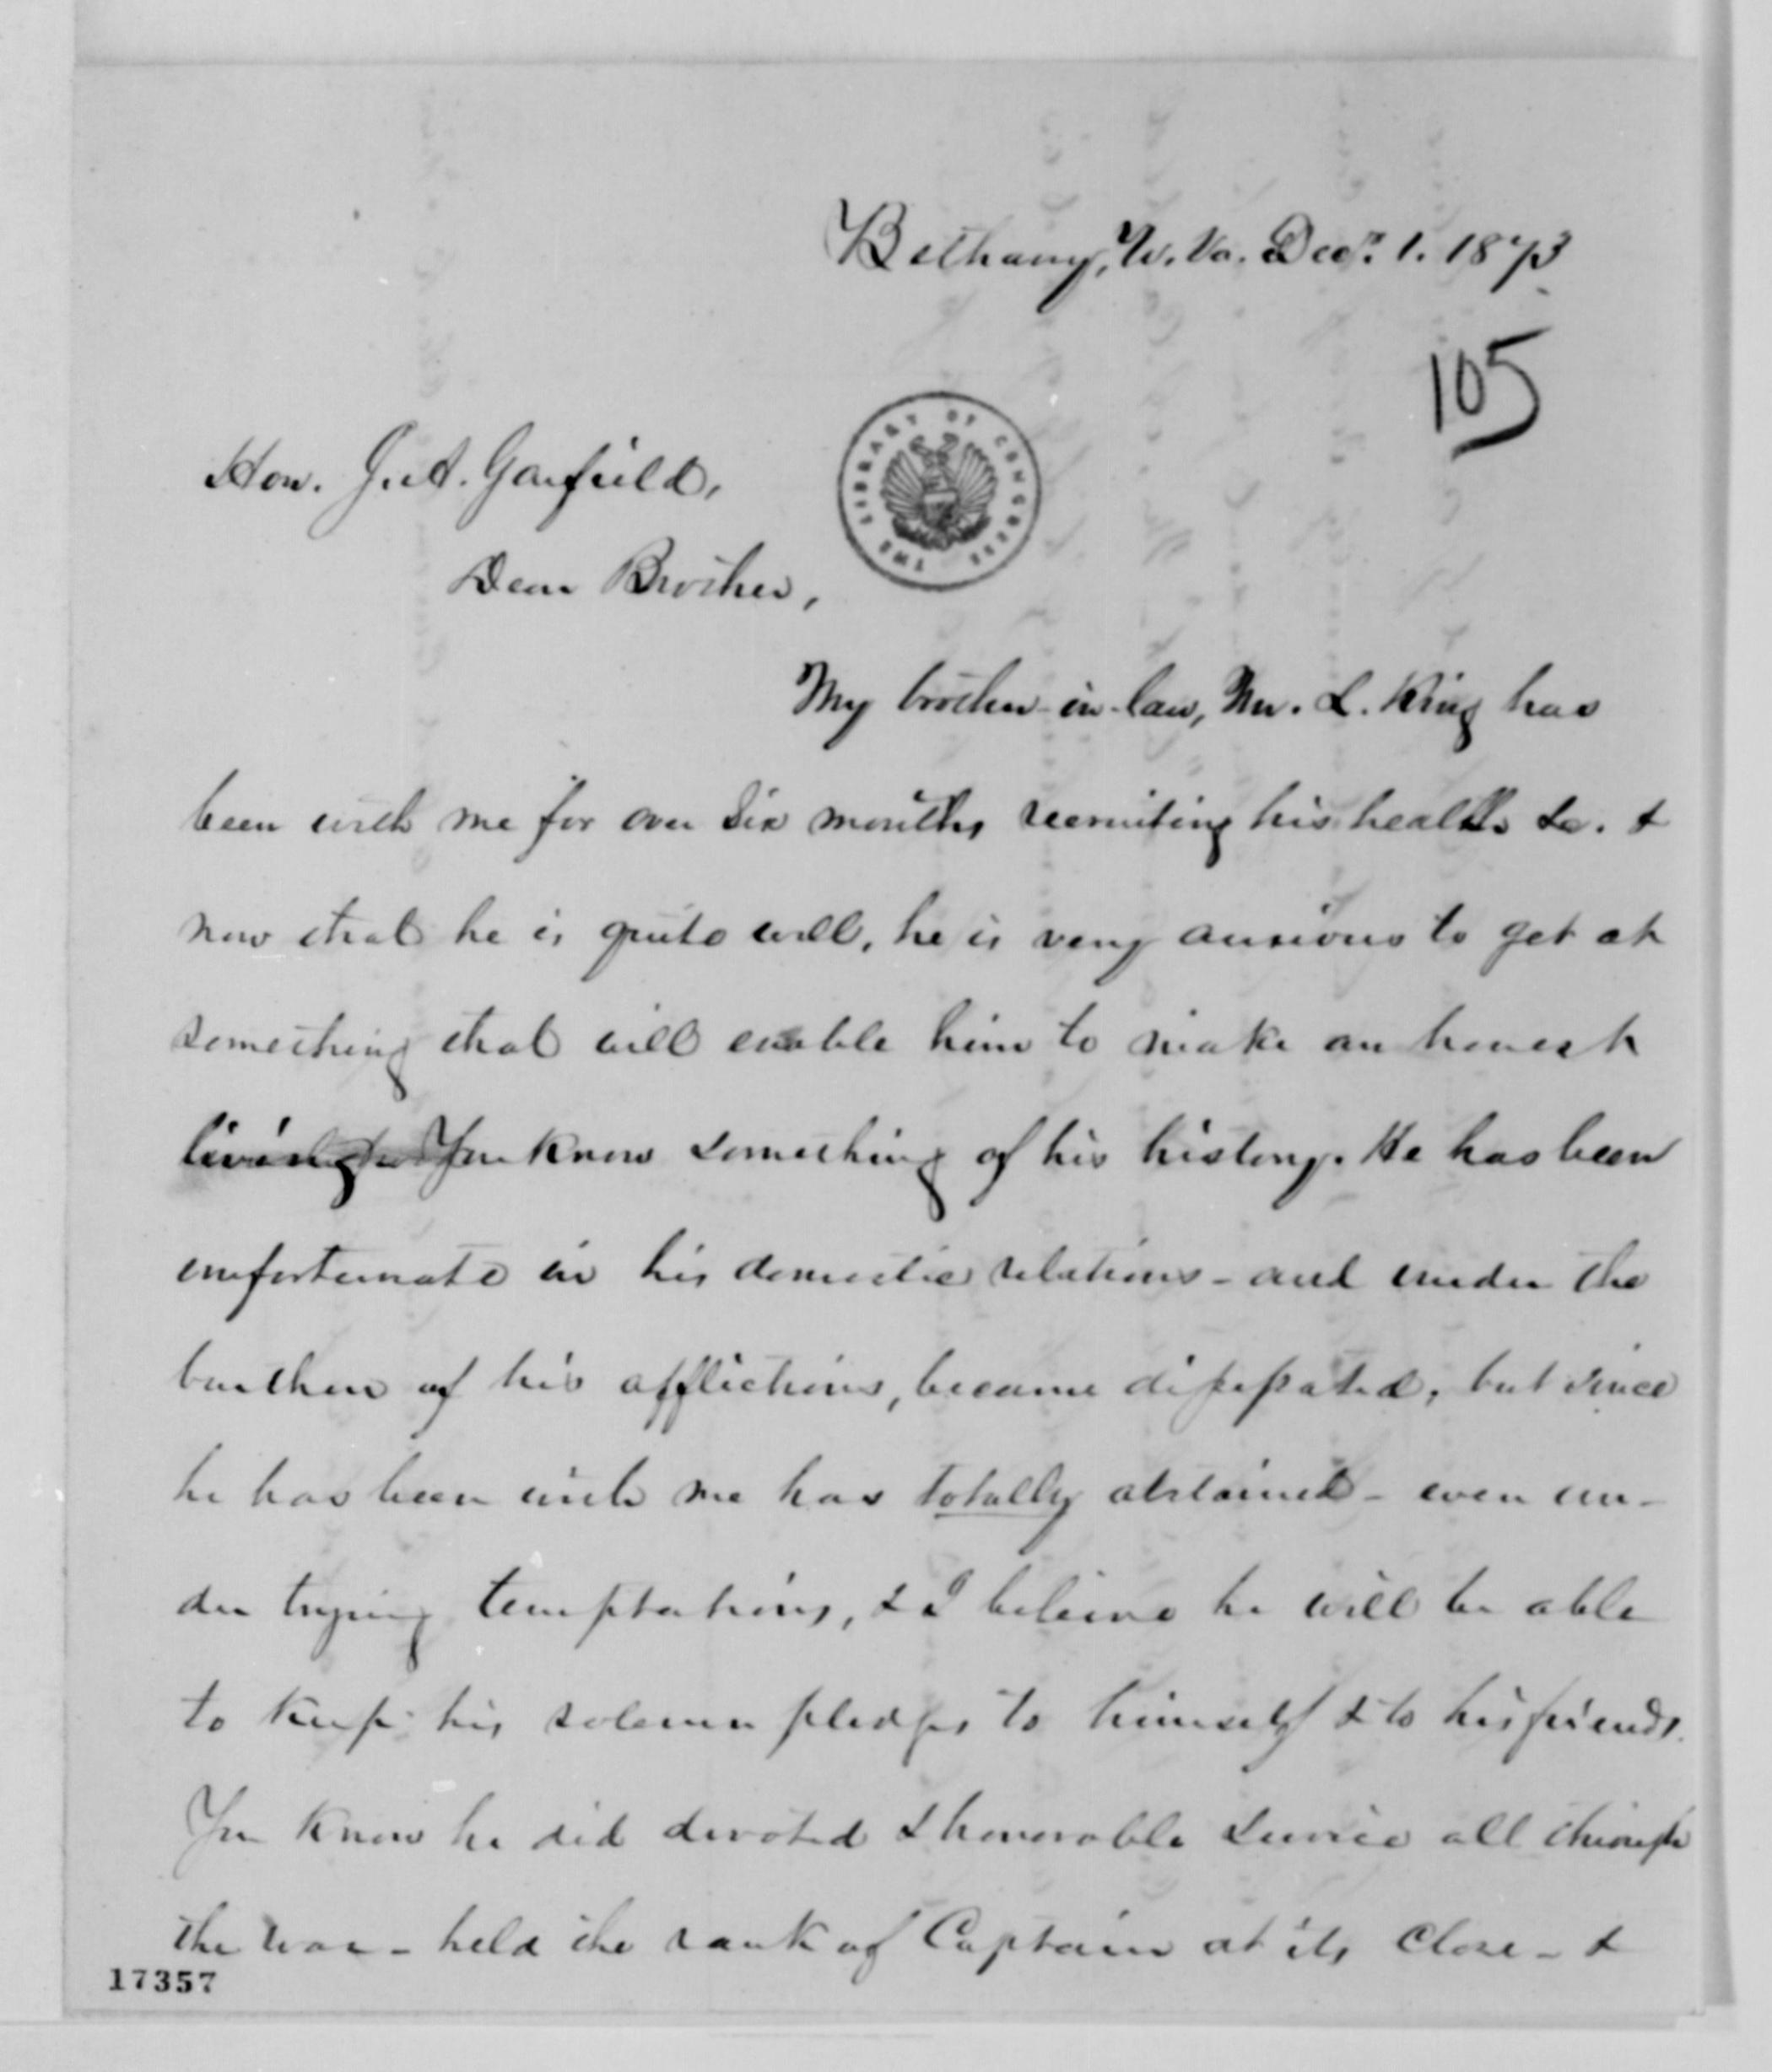 Bethany, W. Va. Decr. 1. 1873
105
Hon. J. A. Garfield,
THE LIBRARY OF CONGRESS
Dear Brother,
My brother-in-law, Wm. L. King has
been with me for over six months recruiting his health &c. &
now that he is quite well, he is very anxious to get at
something that will enable him to make an honest
living. You know something of his history. He has been
unfortunate in his domestic relations - and under the
burthen of his afflictions, became dissipated, but since
he has been with me has totally abstained - even un-
der trying temptations, & I believe he will be able
to keep his solemn pledges to himself & to his friends.
You know he did devoted & honorable service all through
the war - held the rank of Captain at its close - &
17357